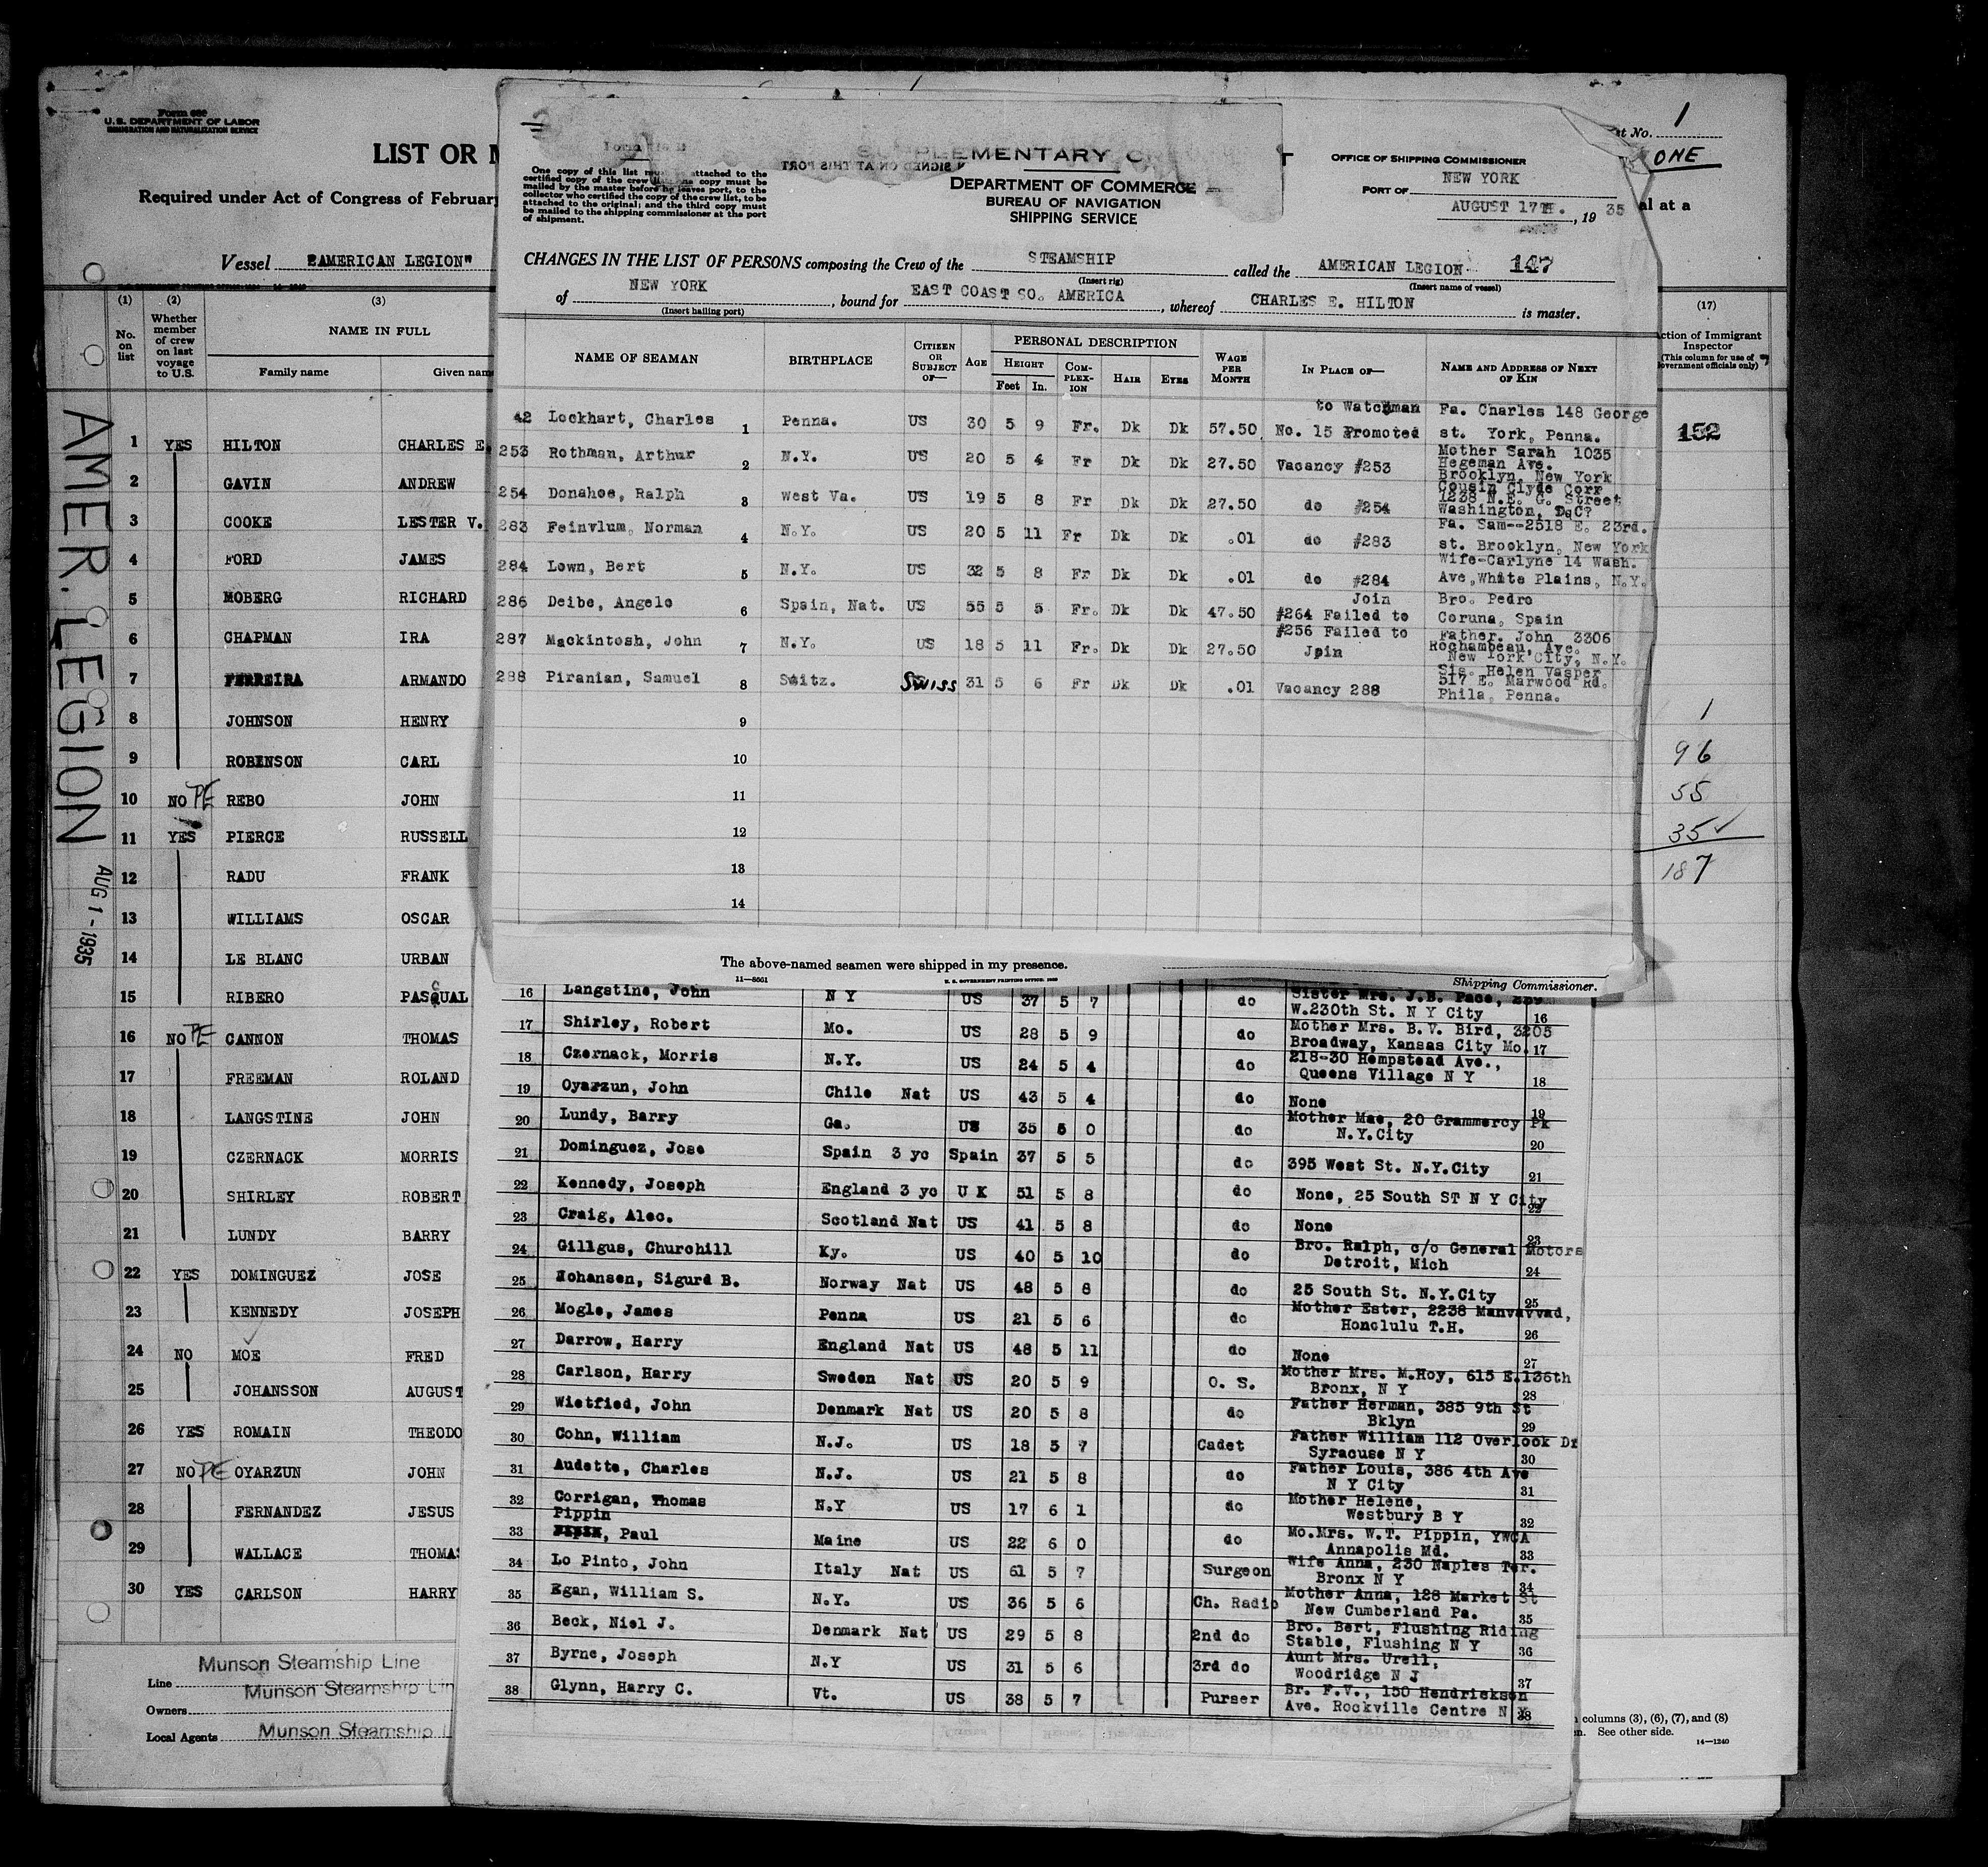 Form 680
U.S. DEPARTMENT OF LABOR
IMMIGRATION AND NATURALIZATION SERVICE
LIST OR
Required under Act of Congress of February
Vessel "AMERICAN LEGION"
(1) (2) (3)
No. on list
Whether member of crew on last voyage to U.S.
NAME IN FULL
Family name Given name
1 YES HILTON CHARLES E.
2 GAVIN ANDREW
3 COOKE LESTER V.
4 FORD JAMES
5 MOBERG RICHARD
6 CHAPMAN IRA
7 FERREIRA ARMANDO
8 JOHNSON HENRY
9 ROBENSON CARL
10 NO PE REBO JOHN
11 YES PIERCE RUSSELL
12 RADU FRANK
13 WILLIAMS OSCAR
14 LE BLANC URBAN
15 RIBERO PASQUAL
16 NO PE CANNON THOMAS
17 FREEMAN ROLAND
18 LANGSTINE JOHN
19 CZERNACK MORRIS
20 SHIRLEY ROBERT
21 LUNDY BARRY
22 YES DOMINGUEZ JOSE
23 KENNEDY JOSEPH
24 NO MOE FRED
25 JOHANSSON AUGUST
26 YES ROMAIN THEODO
27 NO PE OYARZUN JOHN
28 FERNANDEZ JESUS
29 WALLACE THOMAS
30 YES CARLSON HARRY
AMER. LEGION
AUG 1 - 1935
Line Munson Steamship Line
Owners Munson Steamship Lin
Local Agents Munson Steamship L
One copy of this list must attached to the
certified copy of the crew copy must be
mailed by the master before he leaves port, to the
collector who certified the copy of the crew list, to be
attached to the original; and the third copy must
be mailed to the shipping commissioner at the port
of shipment.
SUPPLEMENTARY
SIGNED ON AT THIS PORT
DEPARTMENT OF COMMERCE
BUREAU OF NAVIGATION
SHIPPING SERVICE
OFFICE OF SHIPPING COMMISSIONER
NEW YORK
PORT OF
AUGUST 17TH. , 19 35
CHANGES IN THE LIST OF PERSONS composing the Crew of the STEAMSHIP called the AMERICAN LEGION 147
(Insert rig) (Insert name of vessel)
of NEW YORK , bound for EAST COAST SO. AMERICA , whereof CHARLES E. HILTON is master.
(Insert hailing port)
NAME OF SEAMAN
BIRTHPLACE
CITIZEN OR SUBJECT OF—
AGE
PERSONAL DESCRIPTION
HEIGHT
Feet In.
COMPLEXION
HAIR
EYES
WAGE PER MONTH
IN PLACE OF—
NAME AND ADDRESS OF NEXT OF KIN
to Watchman Fa. Charles 148 George
42 Lockhart, Charles 1 Penna. US 30 5 9 Fr. Dk Dk 57.50 No. 15 Promoted st. York, Penna.
253 Rothman, Arthur 2 N.Y. US 20 5 4 Fr Dk Dk 27.50 Vacancy #253 Mother Sarah 1035
Hegeman Ave.
Brooklyn, New York
254 Donahoe, Ralph 3 West Va. US 19 5 8 Fr Dk Dk 27.50 do #254 Cousin Clyde Corr
1238 N.E. G. Street
Washington, DqC?
283 Feinvlum, Norman 4 N.Y. US 20 5 11 Fr Dk Dk .01 do #283 Fa. Sam--2518 E. 23rd.
st. Brooklyn, New York
284 Lown, Bert 5 N.Y. US 32 5 8 Fr Dk Dk .01 do #284 Wife-Carlyne 14 Wash.
Ave,White Plains, N.Y.
286 Deibe, Angelo 6 Spain, Nat. US 55 5 5 Fr. Dk Dk 47.50 #264 Failed to Join Bro. Pedro
Coruna, Spain
287 Mackintosh, John 7 N.Y. US 18 5 11 Fr. Dk Dk 27.50 #256 Failed to Join Father. John 3306
Rochambeau, Ave.
New York City, N.Y.
288 Piranian, Samuel 8 Switz. Swiss 31 5 6 Fr Dk Dk .01 Vacancy 288 Sis. Helen Vasper
517 E. Marwood Rd.
Phila, Penna.
9
10
11
12
13
14
The above-named seamen were shipped in my presence.
11—8661 U. S. GOVERNMENT PRINTING OFFICE
Shipping Commissioner.
16 Langstine, John N Y US 37 5 7 do Sister Mrs. J.B. Pace, 239
W.230th St. N Y City 16
17 Shirley, Robert Mo. US 28 5 9 do Mother Mrs. B.V. Bird, 3205
Broadway, Kansas City Mo. 17
18 Czernack, Morris N.Y. US 24 5 4 do 218-30 Hempstead Ave.,
Queens Village N Y 18
19 Oyarzun, John Chile Nat US 43 5 4 do None 19
20 Lundy, Barry Ga. US 35 5 0 do Mother Mae, 20 Grammercy Pk
N.Y.City 20
21 Dominguez, Jose Spain 3 yc Spain 37 5 5 do 395 West St. N.Y.City 21
22 Kennedy, Joseph England 3 yc U K 51 5 8 do None, 25 South ST N Y City 22
23 Craig, Alec. Scotland Nat US 41 5 8 do None 23
24 Gillgus, Churchill Ky. US 40 5 10 do Bro. Ralph, c/o General Motors
Detroit, Mich 24
25 Johansen, Sigurd B. Norway Nat US 48 5 8 do 25 South St. N.Y.City 25
26 Mogle, James Penna US 21 5 6 do Mother Ester, 2238 Manvavvad,
Honolulu T.H. 26
27 Darrow, Harry England Nat US 48 5 11 do None 27
28 Carlson, Harry Sweden Nat US 20 5 9 O. S. Mother Mrs. M.Hoy, 615 E.136th
Bronx, N Y 28
29 Wietfied, John Denmark Nat US 20 5 8 do Father Herman, 385 9th St
Bklyn 29
30 Cohn, William N.J. US 18 5 7 Cadet Father William 112 Overlook Dr
Syracuse N Y 30
31 Audette, Charles N.J. US 21 5 8 do Father Louis, 386 4th Ave
N Y City 31
32 Corrigan, Thomas N.Y US 17 6 1 do Mother Helene,
Westbury B Y 32
33 Pippin, Paul Maine US 22 6 0 do Mo.Mrs. W.T. Pippin, YWCA
Annapolis Md. 33
34 Lo Pinto, John Italy Nat US 61 5 7 Surgeon Wife Anna, 230 Naples Ter.
Bronx N Y 34
35 Egan, William S. N.Y. US 36 5 6 Ch. Radio Mother Anna, 128 Market St
New Cumberland Pa. 35
36 Beck, Niel J. Denmark Nat US 29 5 8 2nd do Bro. Bert, Flushing Riding
Stable, Flushing N Y 36
37 Byrne, Joseph N.Y US 31 5 6 3rd do Aunt Mrs. Urell,
Woodridge N J 37
38 Glynn, Harry C. Vt. US 38 5 7 Purser Br. F.V., 150 Hendrickson
Ave. Rockville Centre N Y 38
No. 1
ONE
al at a
(17)
ction of Immigrant
Inspector
(This column for use of
overnment officials only)
152
1
96
55
35 ✓
187
columns (3), (6), (7), and (8)
n. See other side.
14—1240